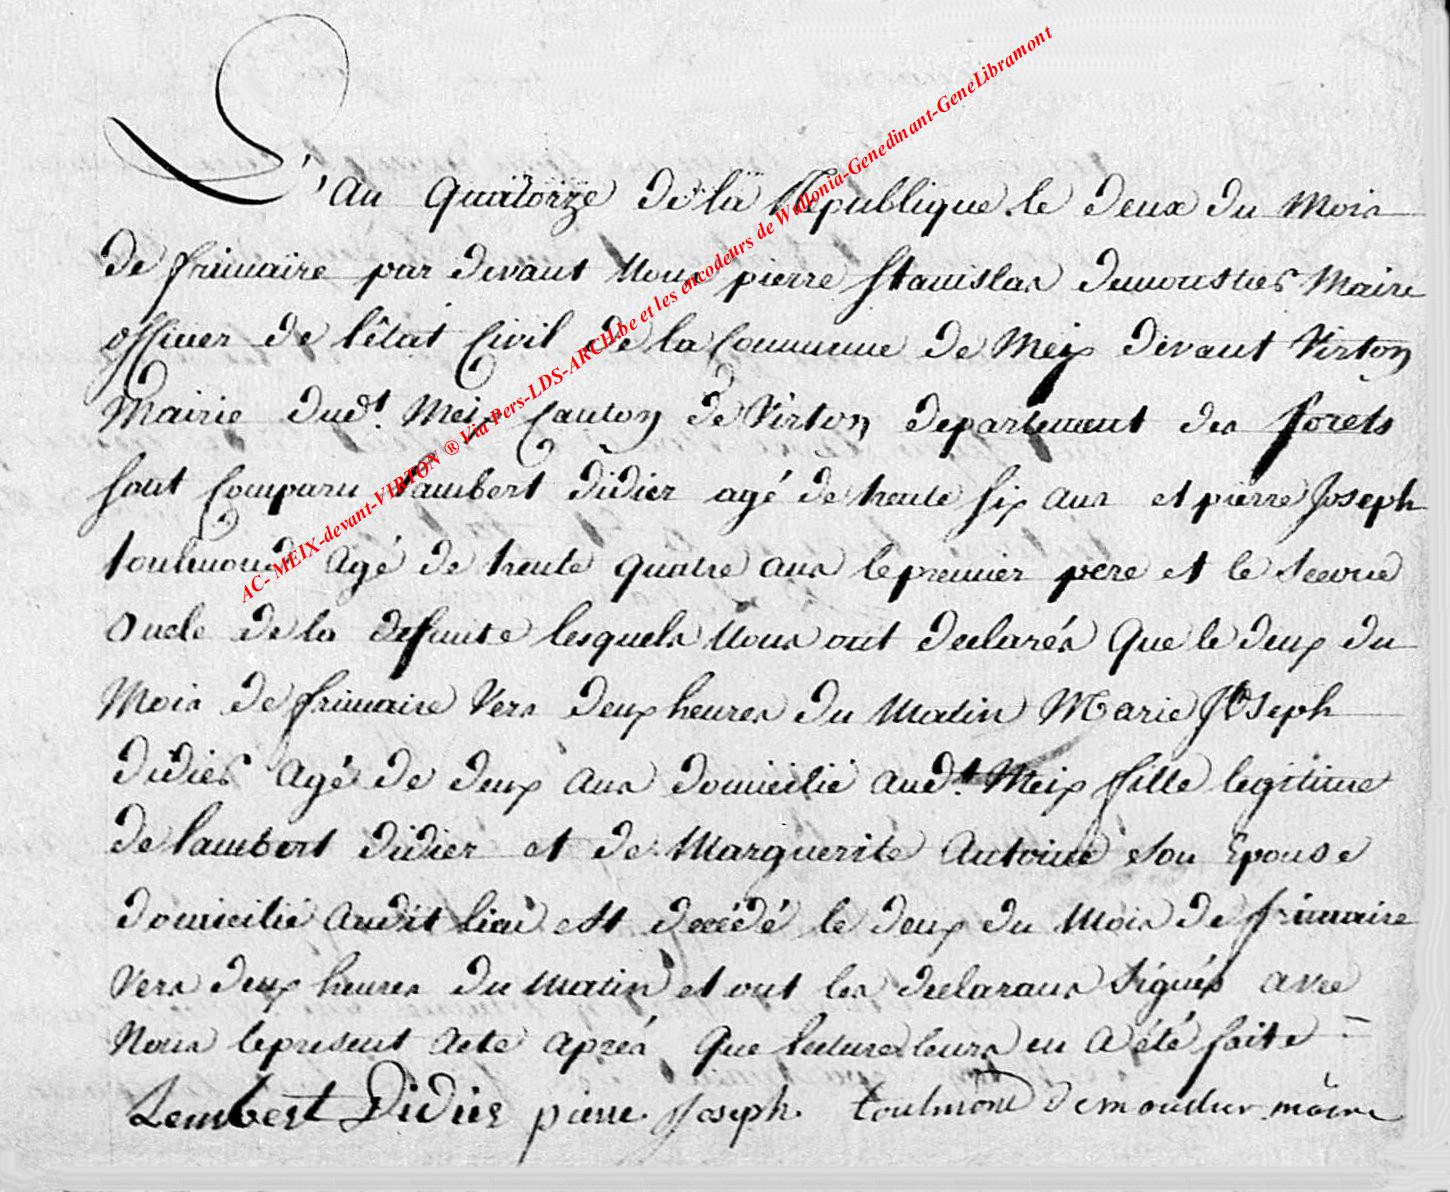 L'an quatorze de la Republique le deux du Mois
de frimaire par devant Nous pierre Stanislas demousties Maire
officier de l'êtat Civil de la Commune de Meix devant Virton
Mairie dudt. Meix Canton de Virton departement des forets
sont Comparu Lambert didier agé de trente six ans et pierre Joseph
toulmond agé de trente quatre ans le premier pere et le
oncle de la defunte lesquels Nous ont declarés que le deux du
Mois de frimaire Vers deux heures du Matin Marie Joseph
didies agé de deux ans domicilié audt. Meix fille legitime
de lambert didier et de Marguerite Antoine son Epouse
domicilié audit lieu est decédé le deux du Mois de frimaire
Vers deux heures du Matin et ont les declarans signés avec
Nous le present acte aprés que lecture leurs en a été faite =
Lembert Didier pierre Joseph toulmond demoustier maire
AC- MEIX-devant-VIRTON ® Via Pers-LDS-ARCH.be et les encodeurs de Wallonia-Genedinant-GeneLibramont